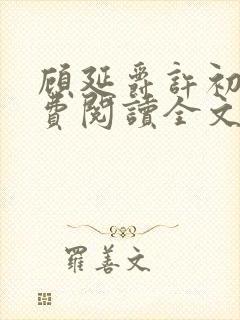 顧延爵許初
費閱讀全文
羅善文